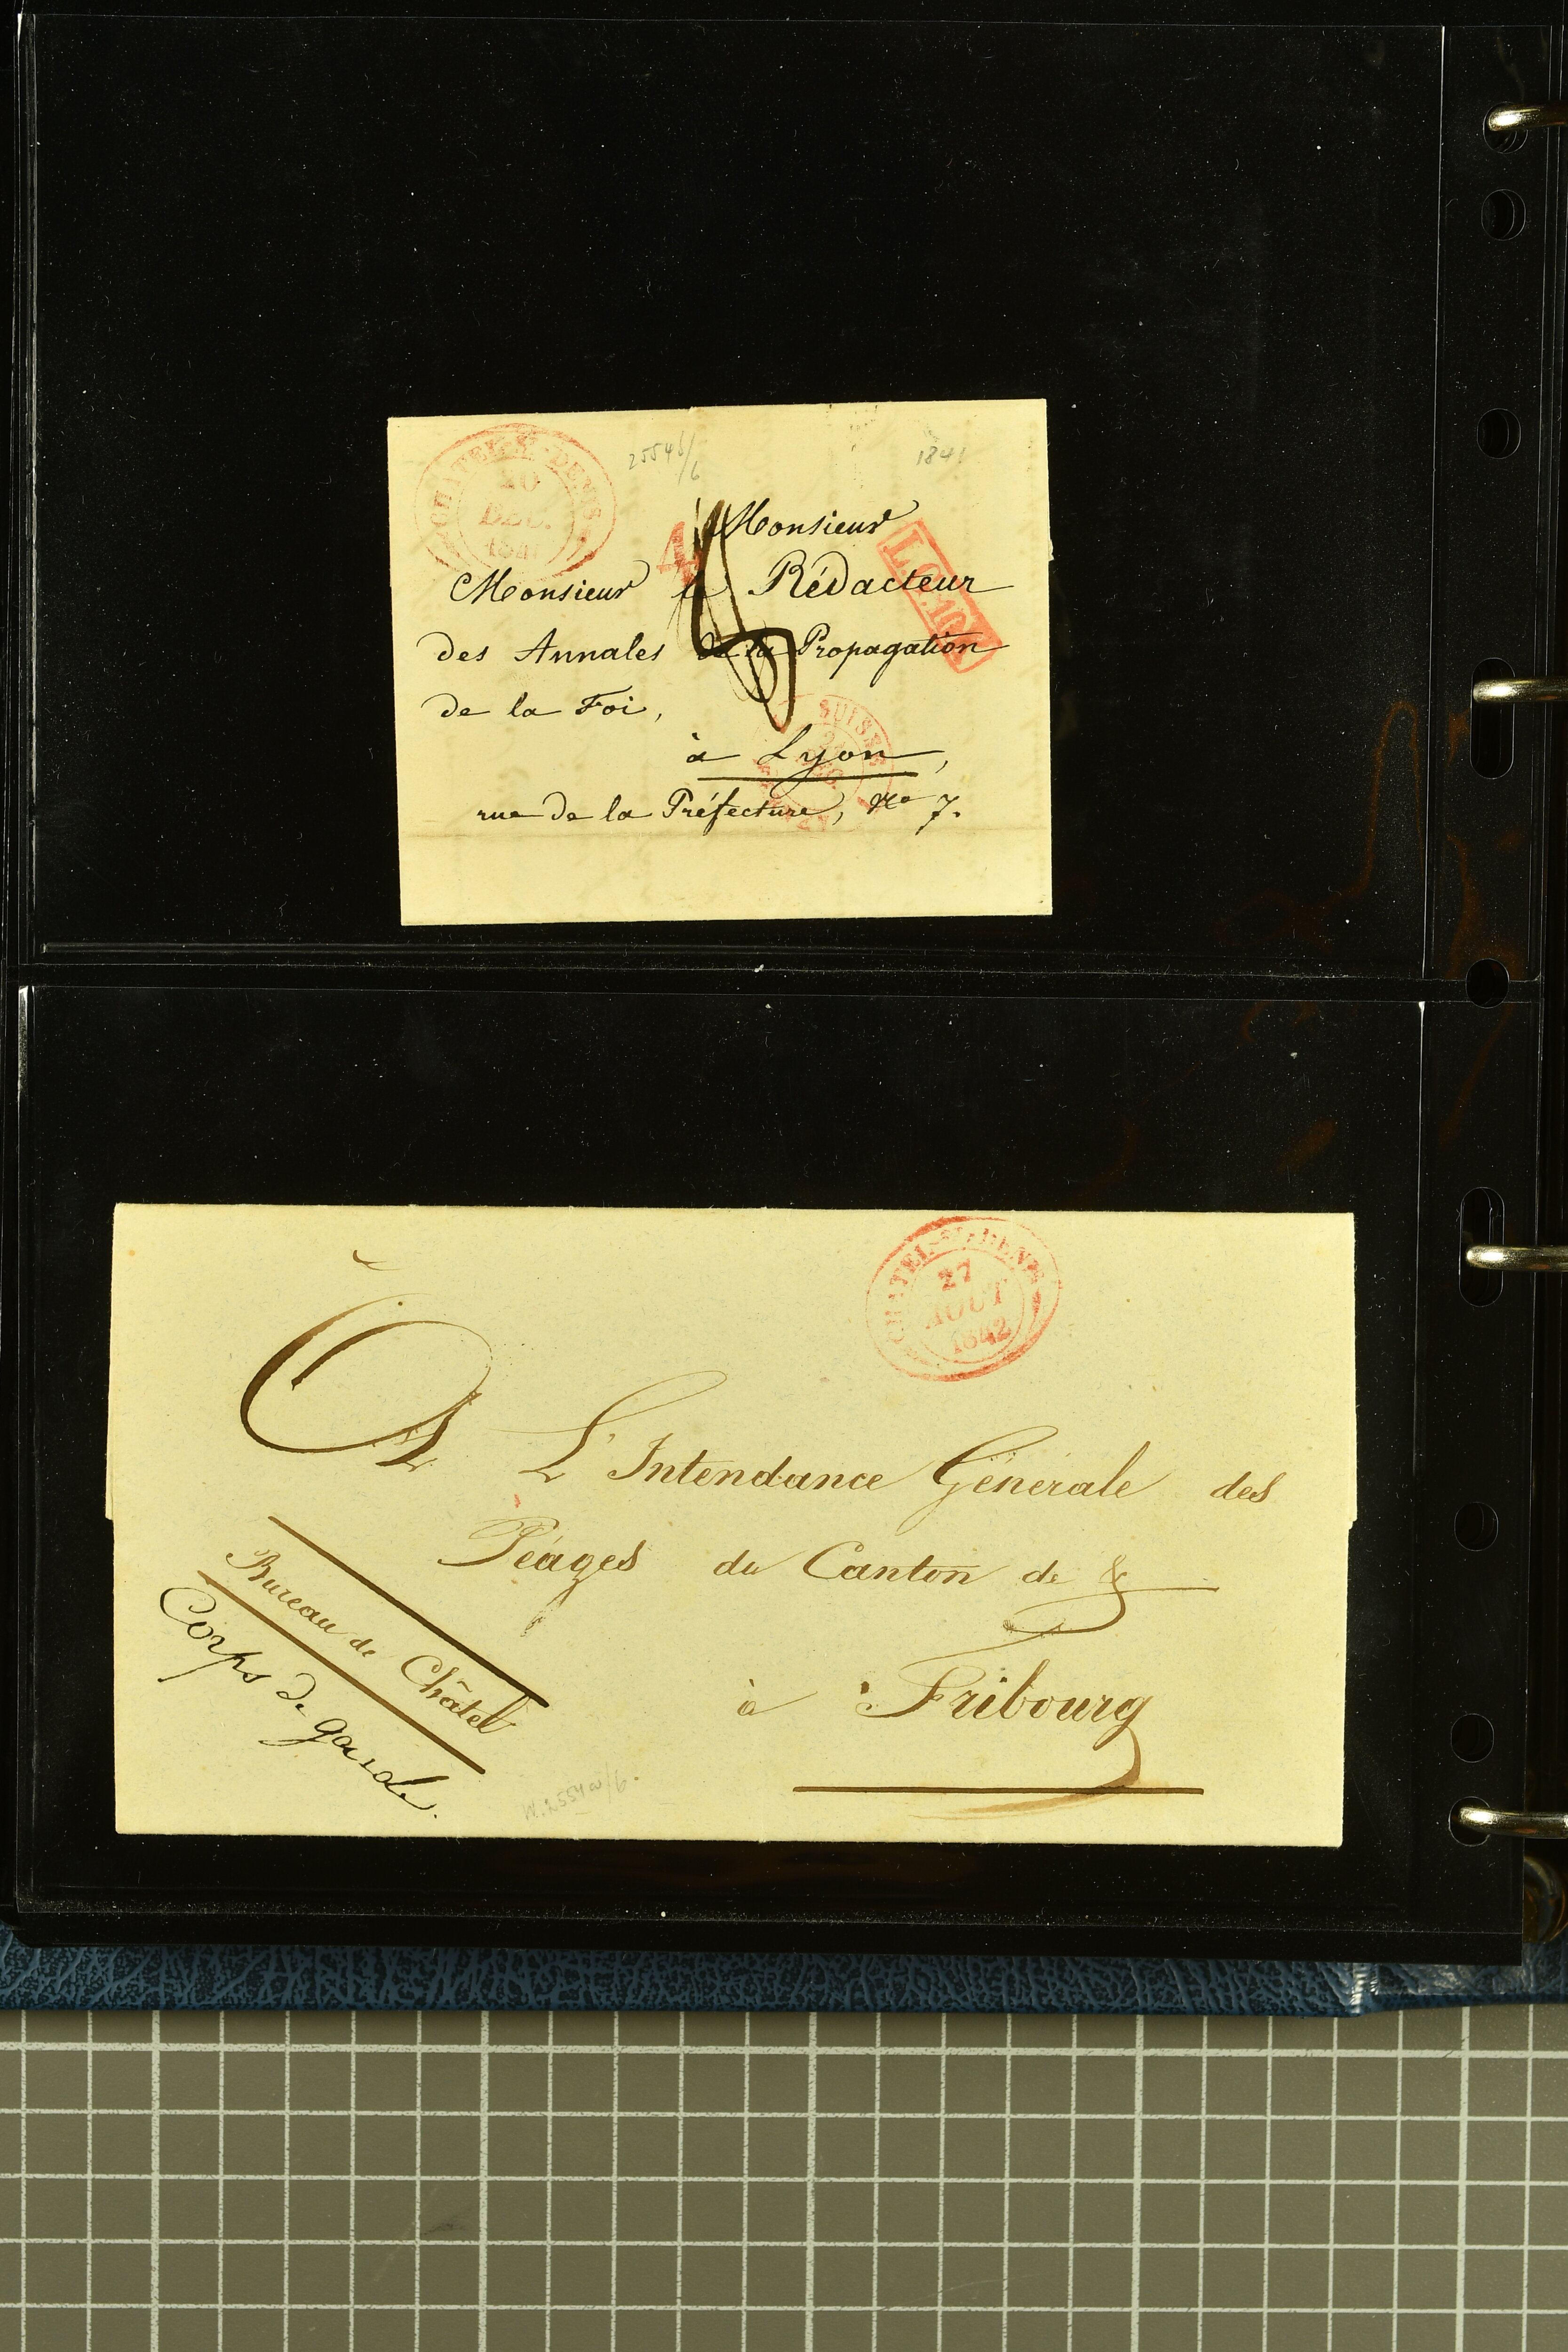 CHATEL-ST-DENIS
20
DEC.
1841
1841
4
Monsieur
L.G.16K
Monsieur le Rédacteur
des Annales de la Propagation
de la Foi,
SUISSE
DEC.
à Lyon,
rue de la Préfecture, No 7.
CHATEL-ST-DENIS
27
AOUT
1842
A L'Intendance Générale des
Péages du Canton de &
à Fribourg
Bureau de Châtel
Corps de garde.